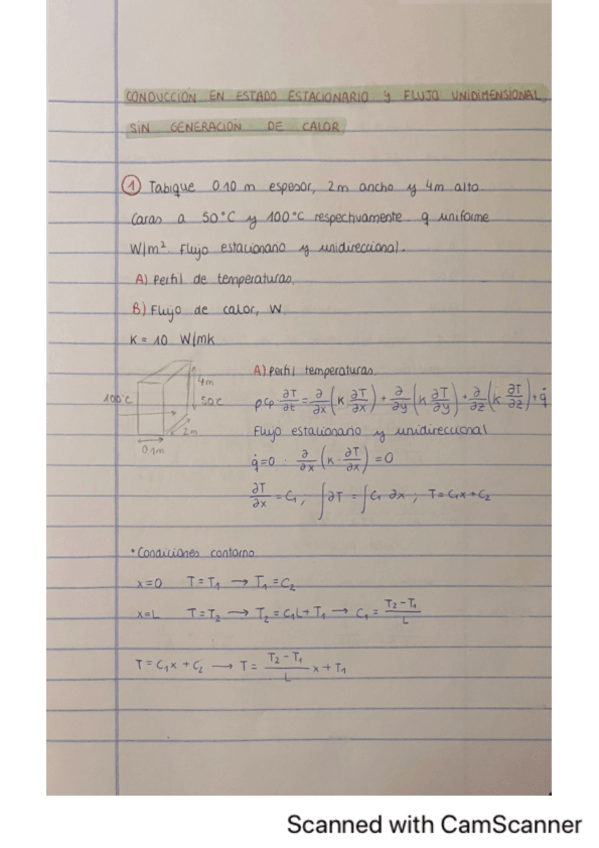 CONDUCCIÓN EN ESTADO ESTACIONARIO y FLUJO UNIDIMENSIONAL
SIN GENERACIÓN DE CALOR
① Tabique 0.10 m espesor, 2m ancho y 4m alto.
Caras a 50°C y 100°C respectivamente. q uniforme
W/m². Flujo estacionario y unidireccional.
A) Perfil de temperaturas.
B) Flujo de calor, W.
K = 10 W/mk
4m
100°C
50C
2m
0.1m
A) Perfil temperaturas.
ρCp ∂T/∂t = ∂/∂x (K ∂T/∂x) + ∂/∂y (K ∂T/∂y) + ∂/∂z (K ∂T/∂z) + q̇
Flujo estacionario y unidireccional
q̇=0 : ∂/∂x (K · ∂T/∂x) = 0
∂T/∂x = C₁ ; ∫∂T = ∫C₁ ∂x ; T = C₁x + C₂
• Condiciones contorno
x=0 T=T₁ → T₁=C₂
x=L T=T₂ → T₂=C₁L+T₁ → C₁ = T₂-T₁/L
T = C₁x + C₂ → T = T₂-T₁/L x + T₁
Scanned with CamScanner